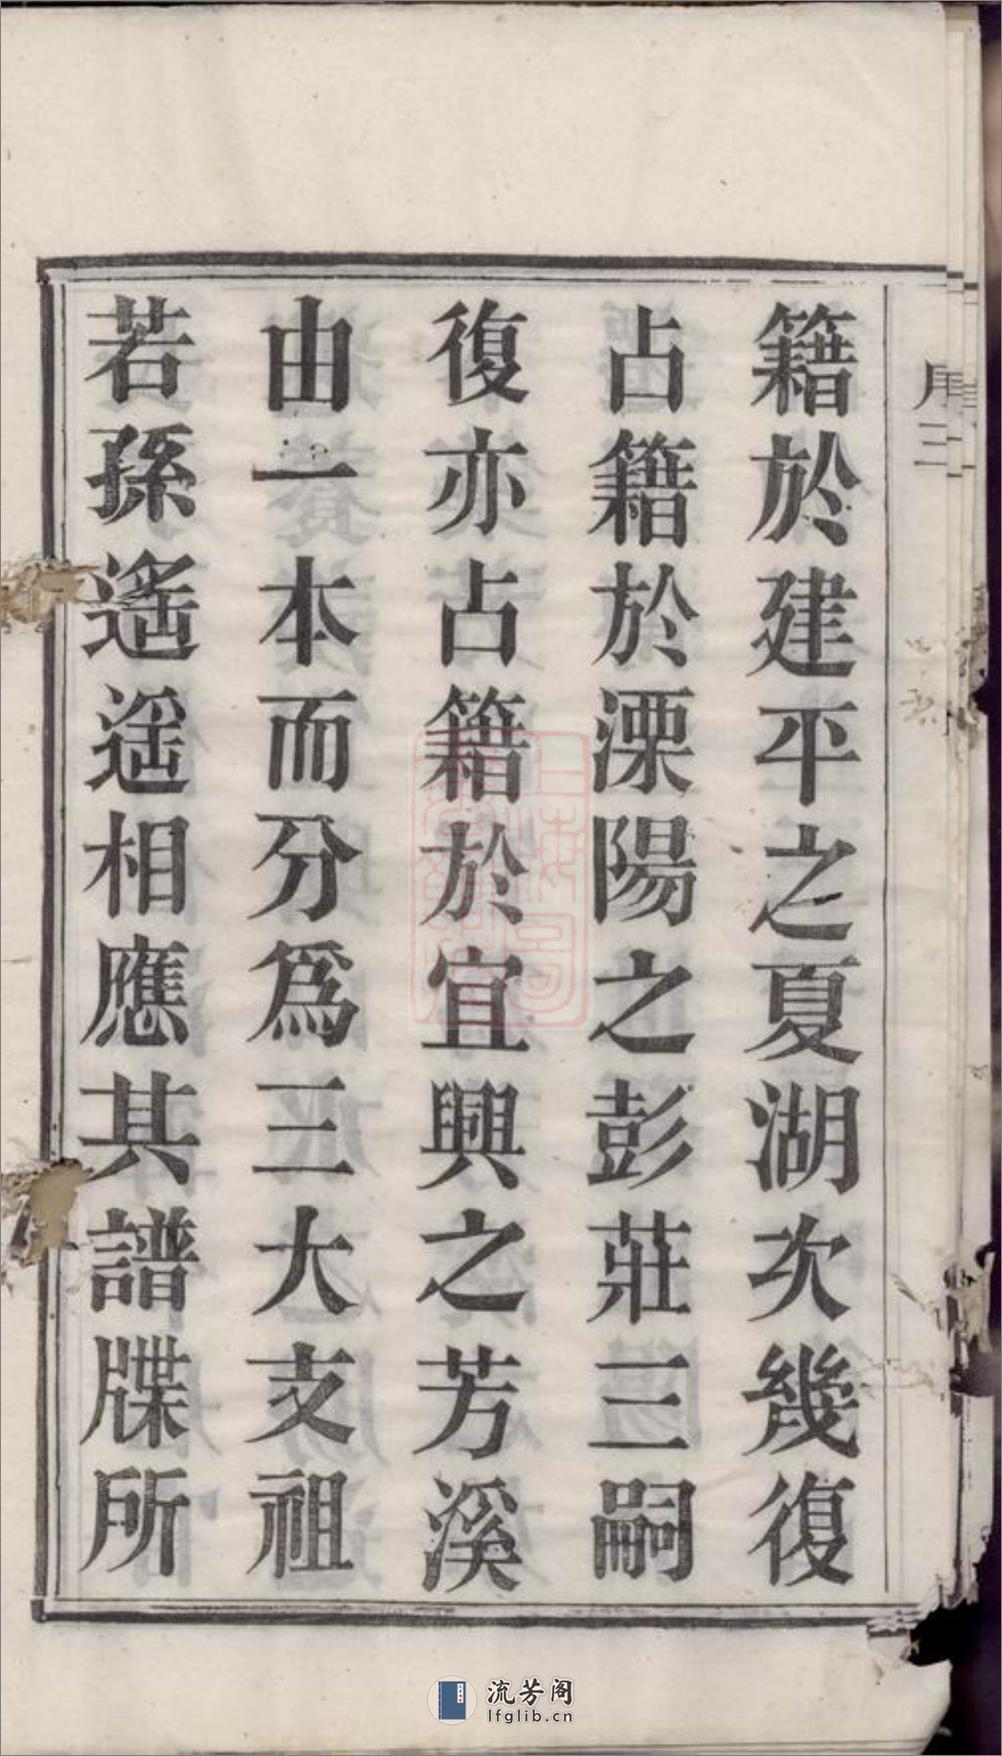 籍於建平之夏湖次幾復
占籍於溧陽之彭莊三嗣
復亦占籍於宜興之芳溪
由一本而分爲三大支祖
若孫遙遙相應其譜牒所
流芳阁
lfglib.cn